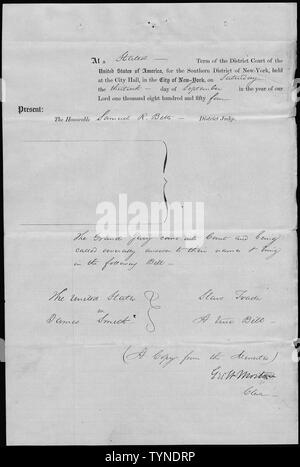 At a Stated Term of the District Court of the
United States of America, for the Southern District of New-York, held
at the City Hall, in the City of New-York, on Saturday
the thirtieth day of September in the year of our
Lord one thousand eight hundred and fifty four
Present:
The Honorable Samuel R. Betts District Judge.
The Grand Jury come into Court and being
called severally answer to their names & bring
in the following Bill
The United States Slave Trade
vs
James Smith A True Bill
(A Copy from the Minutes)
Geo W Morton
Clerk
alamy
Image ID: TYNDRP
www.alamy.com